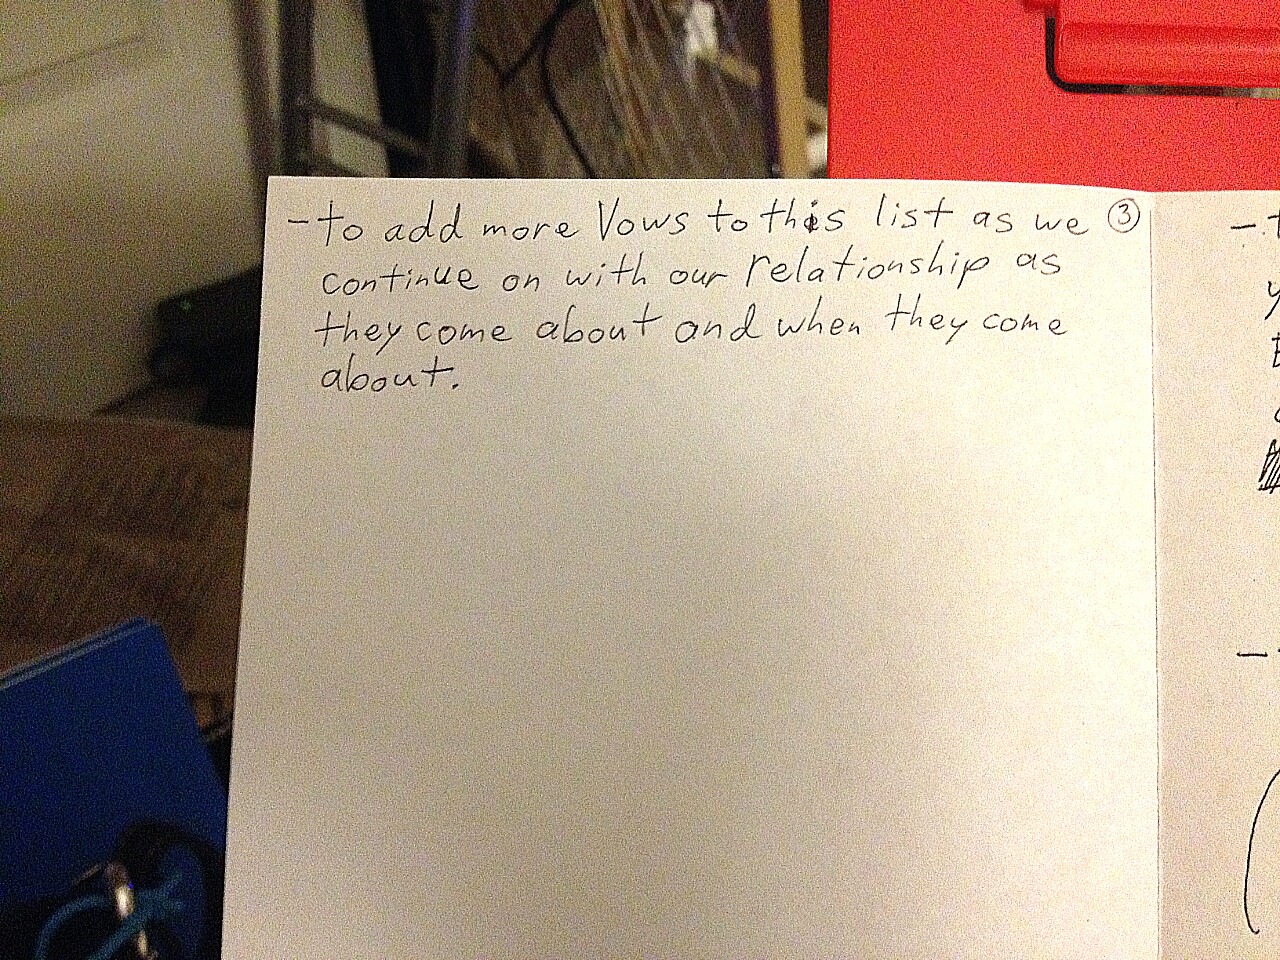 - to add more Vows to this list as we ③
continue on with our relationship as
they come about and when they come
about.